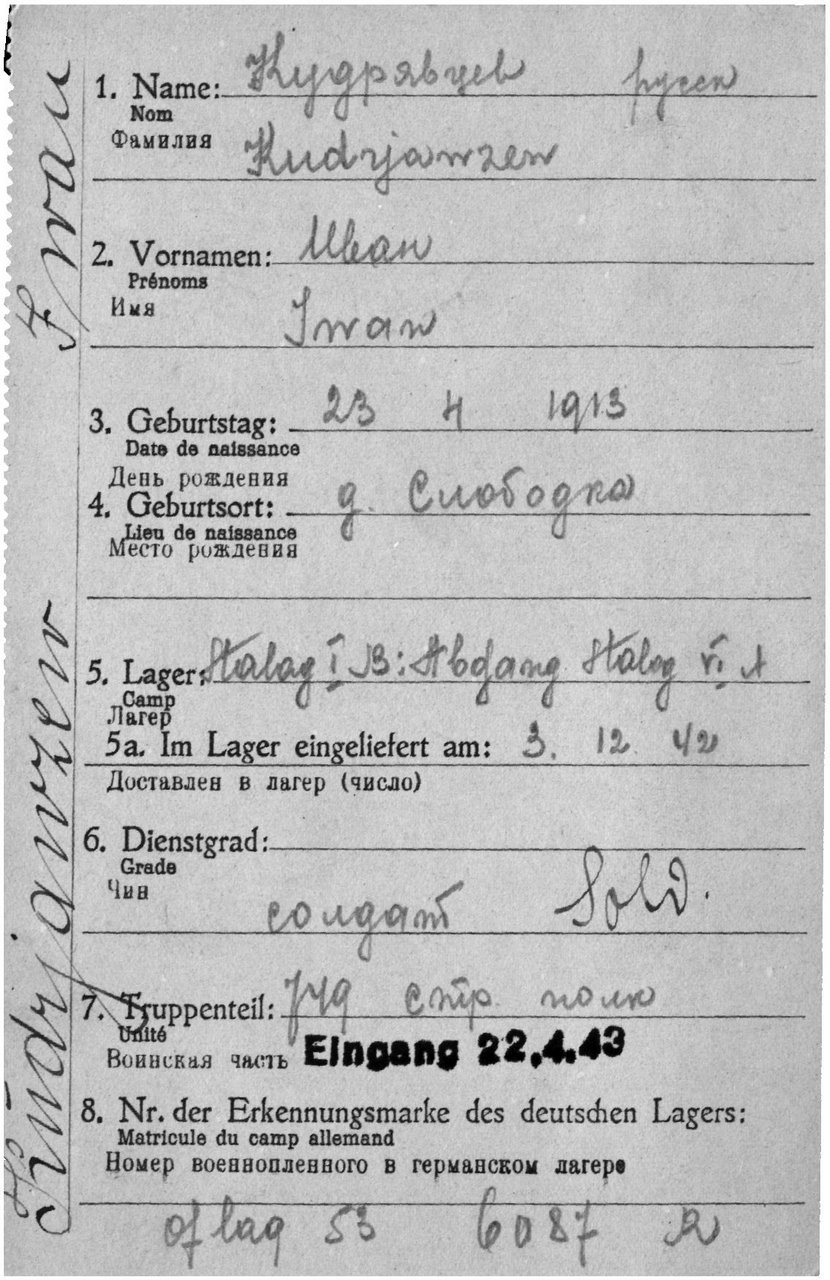 1. Name: Кудрявцев русск
Nom
Фамилия
Kudrjawzew
2. Vornamen: Иван
Prénoms
Имя
Iwan
3. Geburtstag: 23 4 1913
Date de naissance
День рождения
4. Geburtsort: д. Слободка
Lieu de naissance
Место рождения
5. Lager: Stalag I B: Abgang Stalag VI A
Camp
Лагерь
5a. Im Lager eingeliefert am: 3. 12 42
Доставлен в лагер (число)
6. Dienstgrad:
Grade
Чин
солдат Sold.
7. Truppenteil: 749 стр. полк
Unité
Воинская часть Eingang 22.4.43
8. Nr. der Erkennungsmarke des deutschen Lagers:
Matricule du camp allemand
Номер военнопленного в германском лагере
oflag 53 6087
Kudrjawzew Iwan